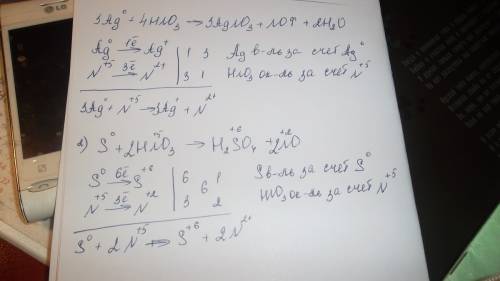 3Ag⁰ + 4HNO₃ → 3AgNO₃ + NO↑ + 2H₂O
Ag⁰ 1ē→ Ag⁺ | 1 3 Ag в-ль за счет Ag⁰
N⁺⁵ 3ē→ N²⁺ | 3 1 HNO₃ ок-ль за счёт N⁺⁵
3Ag⁰ + N⁺⁵ → 3Ag⁺ + N²⁺
2) S⁰ + 2HN⁺⁵O₃ → H₂S⁺⁶O₄ + 2N⁺²O
S⁰ 6ē→ S⁺⁶ | 6 6 1 S в-ль за счет S⁰
N⁺⁵ 3ē→ N⁺² | 3 2 HNO₃ ок-ль за счет N⁺⁵
S⁰ + 2N⁺⁵ → S⁺⁶ + 2N²⁺